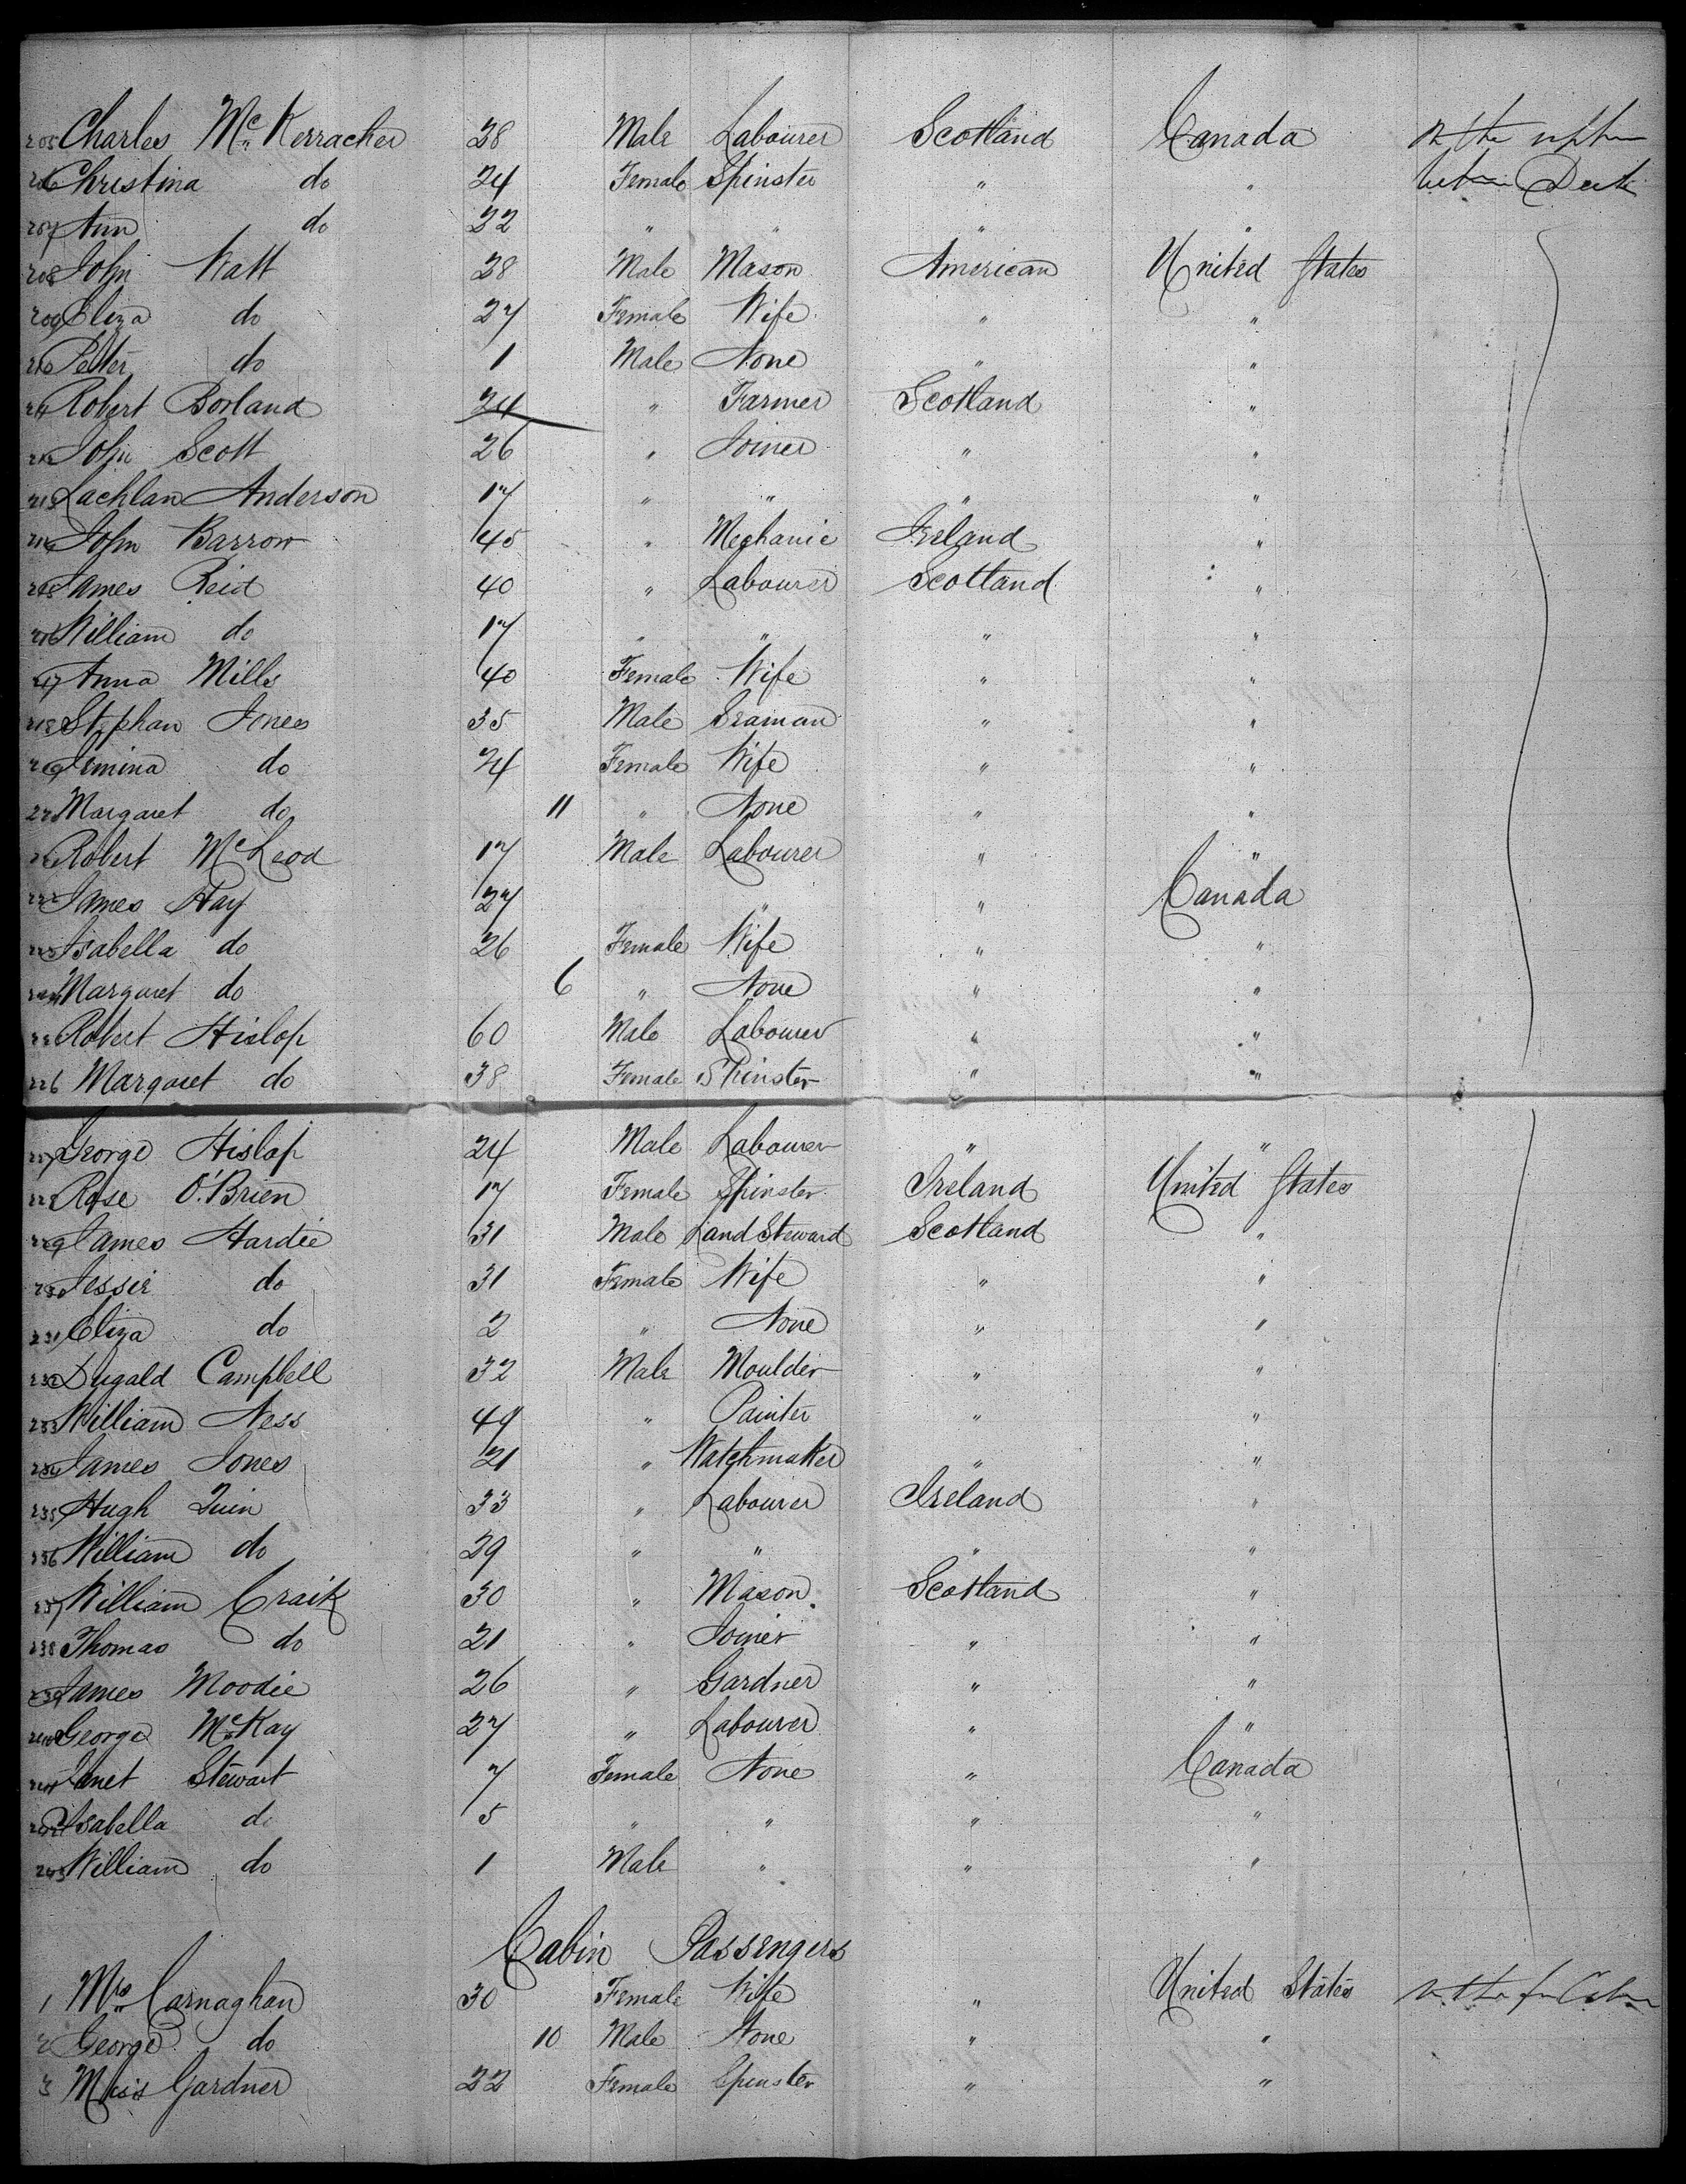 205 Charles McKerracher 28 Male Labourer Scotland Canada In the upper
206 Christina do 24 Female Spinster " " between Deck
207 Ann do 22 " " " "
208 John Watt 28 Male Mason American United States
209 Eliza do 27 Female Wife " "
210 Peter do 1 Male None " "
211 Robert Borland 24 " Farmer Scotland "
212 John Scott 26 " Joiner " "
213 Lachlan Anderson 17 " " " "
214 John Barrow 45 " Mechanic Ireland "
215 James Reid 40 " Labourer Scotland "
216 William do 17 " " " "
217 Anna Mills 40 Female Wife " "
218 Stephan Jones 35 Male Seaman " "
219 Jemina do 24 Female Wife " "
220 Margaret do 11 " None " "
221 Robert McLeod 17 Male Labourer " "
222 James Hay 27 " " " Canada
223 Isabella do 26 Female Wife " "
224 Margaret do 6 " None " "
225 Robert Hislop 60 Male Labourer " "
226 Margaret do 38 Female Spinster " "
227 George Hislop 24 Male Labourer " "
228 Rose O'Brien 17 Female Spinster Ireland United States
229 James Hardie 31 Male Land Steward Scotland "
230 Jessie do 31 Female Wife " "
231 Eliza do 2 " None " "
232 Dugald Campbell 32 Male Moulder " "
233 William Ness 49 " Painter " "
234 James Jones 21 " Watchmaker " "
235 Hugh Quin 33 " Labourer Ireland "
236 William do 29 " " " "
237 William Craik 30 " Mason Scotland "
238 Thomas do 21 " Joiner " "
239 James Moodie 26 " Gardner " "
240 George McKay 27 " Labourer " "
241 Janet Stewart 7 Female None " Canada
242 Isabella do 5 " " " "
243 William do 1 Male " " "
Cabin Passengers
1 Mrs Carnaghan 30 Female Wife " United States In the
2 George do 10 Male None " "
3 Miss Gardner 22 Female Spinster " "